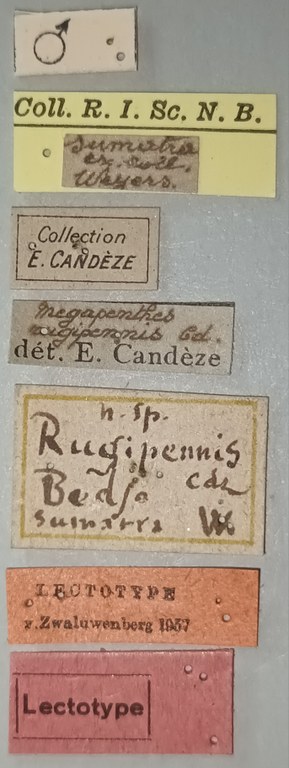 ♂
Coll. R. I. Sc. N. B.
Sumatra
ex. coll.
Weyers.
Collection
E. CANDÈZE
Megapenthes
rugipennis Cd.
dét. E. Candèze
n. sp.
Rugipennis
Cdz
Sumatra
LECTOTYPE
v.Zwaluwenberg 1957
Lectotype